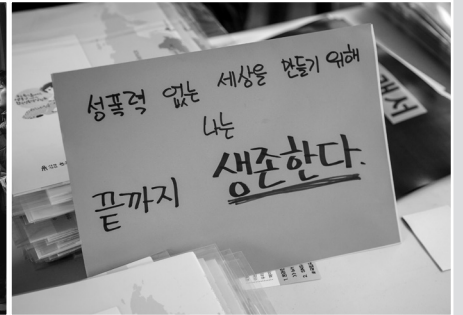 성폭력 없는 세상을 만들기 위해
나는
끝까지 생존한다.